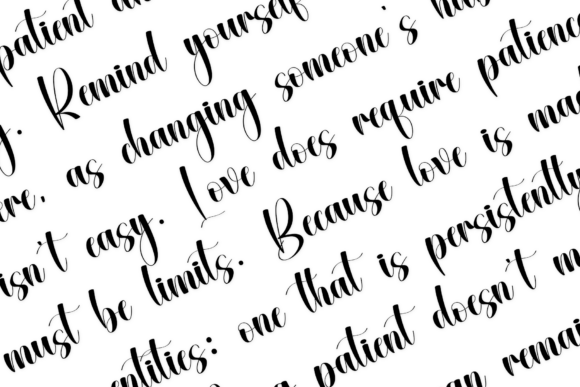 patient an
y. Remind yourself
ere, as changing someone's hab
isn't easy. Love does require patience
must be limits. Because love is mad
entities: one that is persistently
g patient doesn't m
an remai